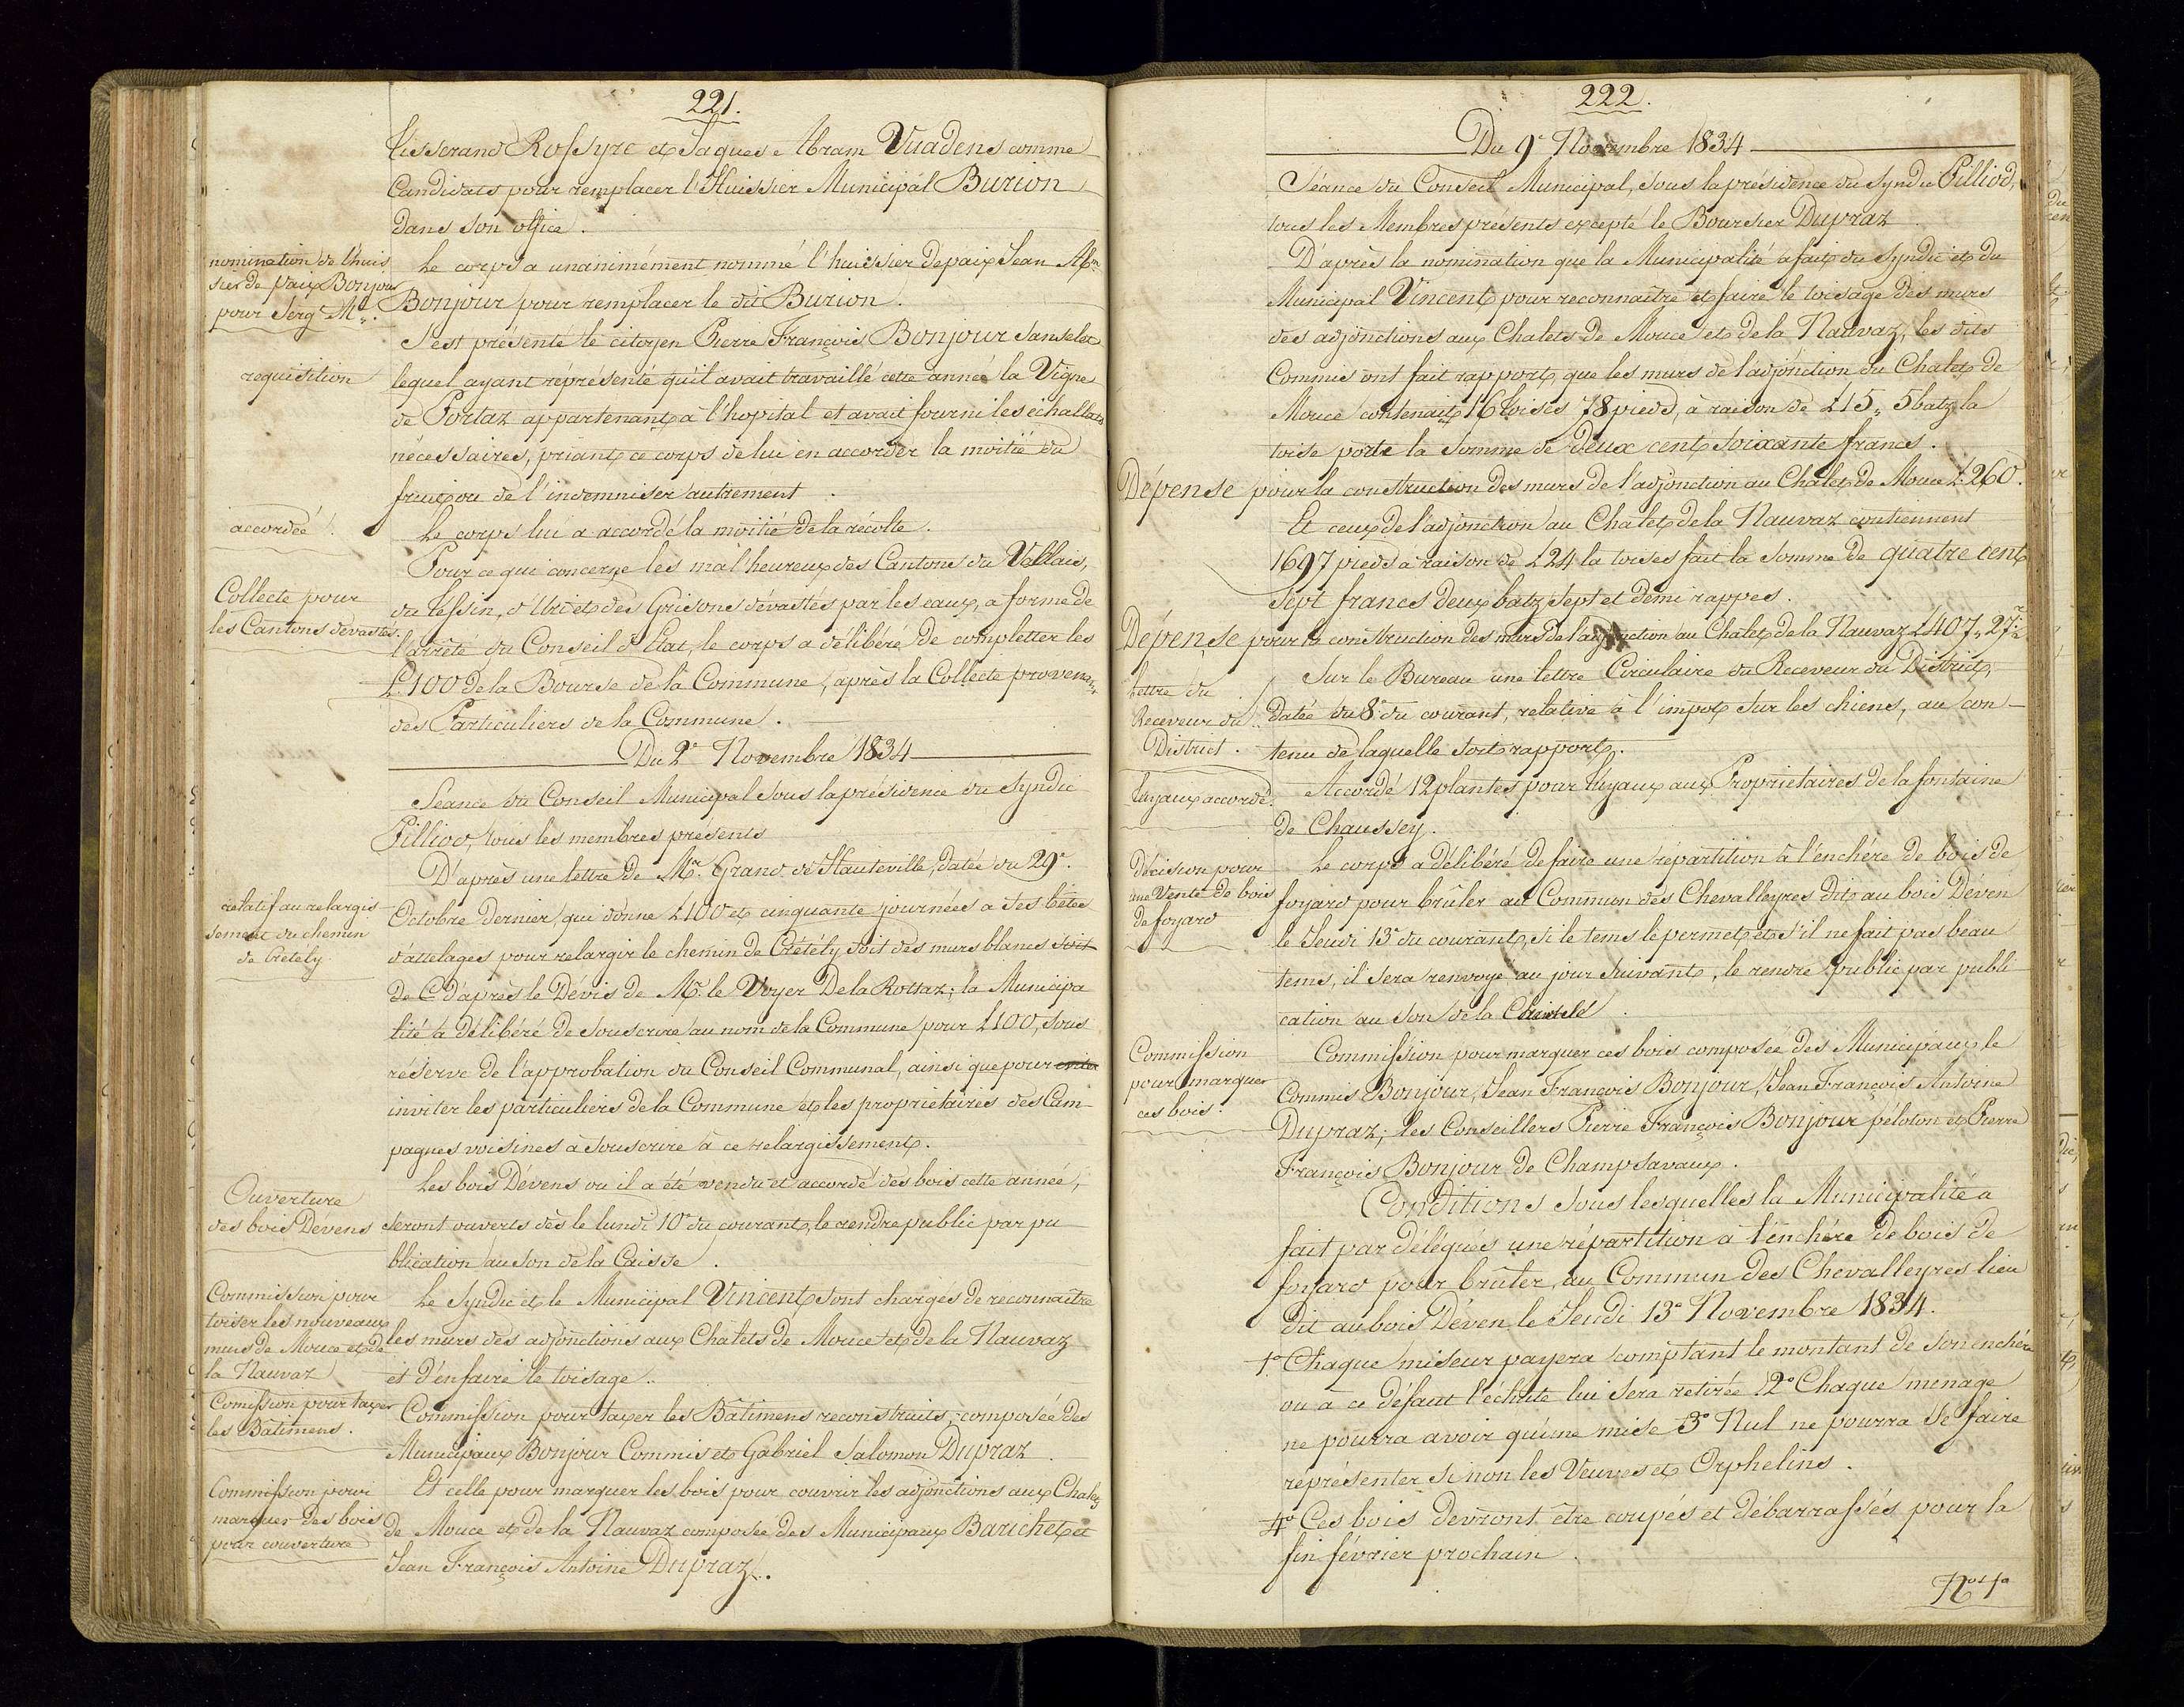 221.
Tisserand Rossyre et Jaques Abram Vuadens comme
Candidats pour remplacer l'Huissier Municipal Burion
dans son office.
nomination de l'huis
sier de paix Bonjour
pour Serg Mal.
Le corps a unanimément nommé l'huissier de paix Jean Abm
Bonjour pour remplacer le dit Burion.
S'est présenté le citoyen Pierre François Bonjour
requisition
lequel ayant réprésenté qu'il avait travaillé cette année la Vigne
de Portaz appartenant a l'hopital et avait fourni les échallats
nécessaires, priant ce corps de lui en accorder la moitié du
fruit ou de l'indemniser autrement.
accordée.
Le corps lui a accordé la moitié de la récolte.
Collecte pour
les Cantons dévastés.
Pour ce qui concerne les mal'heureux des Cantons du Vallais,
du Tessin, d'Uri et des Grisons dévastés par les eaux, a forme de
l'arrêté du Conseil d'Etat, le corps a délibéré de completter les
£100 de la Bourse de la Commune, après la Collecte provenant
des Particuliers de la Commune.
Du 2e Novembre 1834
Séance du Conseil Municipal sous la présidence du Syndic
Pilliod, tous les membres présents
D'après une lettre de Mr. Grand de Hauteville, datée du 29e
relatif au relargis
sement du chemin
de Crétély
Octobre dernier, qui donne £100 et cinquante journées a ses bêtes
d'attelages pour relargir le chemin de Crétély soit des murs blancs soit
de C d'après le Dévis de Mr. le Voyer De la Rottaz; la Municipa
lité a délibéré de souscrire au nom de la Commune pour £100, sous
réserve de l'approbation du Conseil Communal, ainsi que pour
inviter les particuliers de la Commune et les propriétaires des Cam-
pagnes voisines à souscrire à ce relargissement.
Ouverture
des bois Devens
Les bois Dévens ou il a été vendu et accordé des bois cette année,
seront ouverts dès le lundi 10e du courant, le rendre public par pu
blication au son de la Caisse.
Commission pour
toiser les nouveaux
murs de Mouce et de
la Nauvaz
Le Syndic et le Municipal Vincent sont chargés de reconnaître
les murs des adjonctions aux Chalets de Mouce et de la Nauvaz
et d'en faire le toisage.
Comission pour taxer
les Bâtimens.
Commission pour taxer les Bâtimens reconstruits, composée des
Municipaux Bonjour Commis et Gabriel Salomon Dupraz.
Commission pour
marquer des bois
pour couverture
Et celle pour marquer les bois pour couvrir les adjonctions aux Chalets
de Mouce et de la Nauvaz composée des Municipaux Barichet et
Jean François Antoine Dupraz.
222.
Du 9e Novembre 1834
Séance du Conseil Municipal, sous la présidence du Syndic Pilliod,
tous les Membres présents excepté le Boursier Dupraz
D'après la nomination que la Municipalité a fait du Syndic et du
Municipal Vincent pour reconnaître et faire le toisage des murs
des adjonctions aux Chalets de Mouce et de la Nauvaz, les dits
Commis ont fait rapport que les murs de l'adjonction du Chalet de
Mouce contenait 16 toises 78 pieds, à raison de £15,, 5 batz la
toise porte la somme de deux cent soixante francs.
Dépense pour la construction des murs de l'adjonction au Chalet de Mouce £260.
Et ceux de l'adjonction au Chalet de la Nauvaz contiennent
1697 pieds à raison de £24 la toises fait la somme de quatre cent
sept francs deux batz sept et demi rappes.
Dépense pour la construction des murs de l'adjonction au Chalet de la Nauvaz £407,,27½
Lettre du
Receveur du
District.
Sur le Bureau une lettre Circulaire du Receveur du District,
datée du 8e du courant, relative à l'impot sur les chiens, au con-
tenu de laquelle soit rapport.
tuyaux accordé.
Accordé 12 plantes pour tuyaux aux Propriétaires de la fontaine
de Chaussey.
Décision pour
une Vente de bois
de foyard
Le corps a délibéré de faire une répartition à l'enchère de bois de
foyard pour brûler au Commun des Chevalleyres dit au bois Déven
le Jeudi 13e du courant, si le tems le permet et s'il ne fait pas beau
tems, il sera renvoyé au jour suivant, le rendre public par publi
cation au son de la
Commission
pour marquer
ces bois.
Commission pour marquer ces bois composée des Municipaux, le
Commis Bonjour, Jean François Bonjour, Jean François Antoine
Dupraz; les Conseillers Pierre François Bonjour péloton et Pierre
François Bonjour de Champsavaux.
Conditions sous lesquelles la Municipalité a
fait par délégués une répartition à l'enchère de bois de
foyard pour brûler, au Commun des Chevalleyres lieu
dit au bois Déven le Jeudi 13e Novembre 1834.
1o Chaque miseur payera comptant le montant de son enchère
ou à ce défaut l'échute lui sera retirée 2o Chaque ménage
ne pourra avoir qu'une mise 3o Nul ne pourra se faire
représenter si non les Veuves et Orphelins.
4o Ces bois devront être coupés et débarrassés pour la
fin février prochain.
No 1o